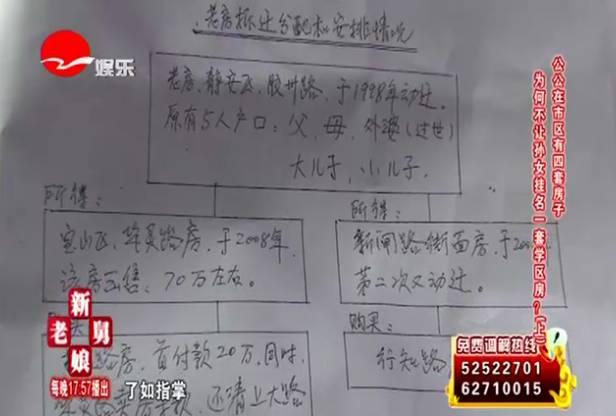 老房拆迁分配和安排情况
娱乐
老房、静安区、胶州路、于1998年动迁。
原有5人户口：父、母、外婆（过世）
大儿子、小儿子。
所得：
宝山区、
路房、于2008年
该房出售、70万左右。
所得：
新闸路街面房、于
第二次又动迁。
购买：
行知路
路房、首付款20万、同时
还清上大路
公公在市区有四套房子
为何不让孙女挂名一套学区房？（上）
新老娘舅
每晚17:57播出
了如指掌
免费调解热线
52522701
62710015